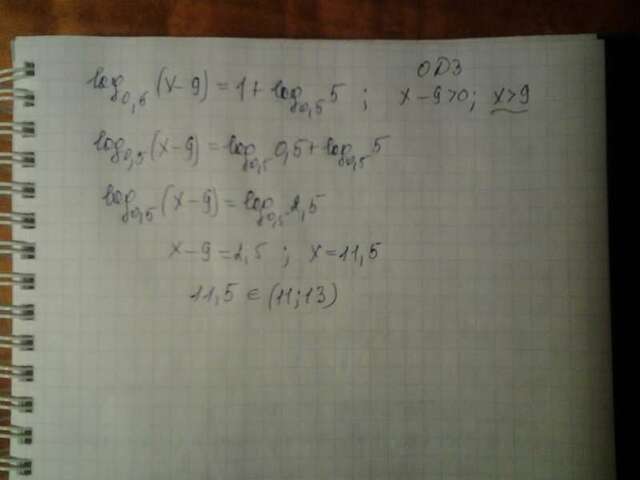 ОДЗ
log₀,₅(x-9) = 1 + log₀,₅5 ; x-9>0; x>9
log₀,₅(x-9) = log₀,₅0,5 + log₀,₅5
log₀,₅(x-9) = log₀,₅2,5
x-9=2,5 ; x=11,5
11,5 ∈ (11;13)